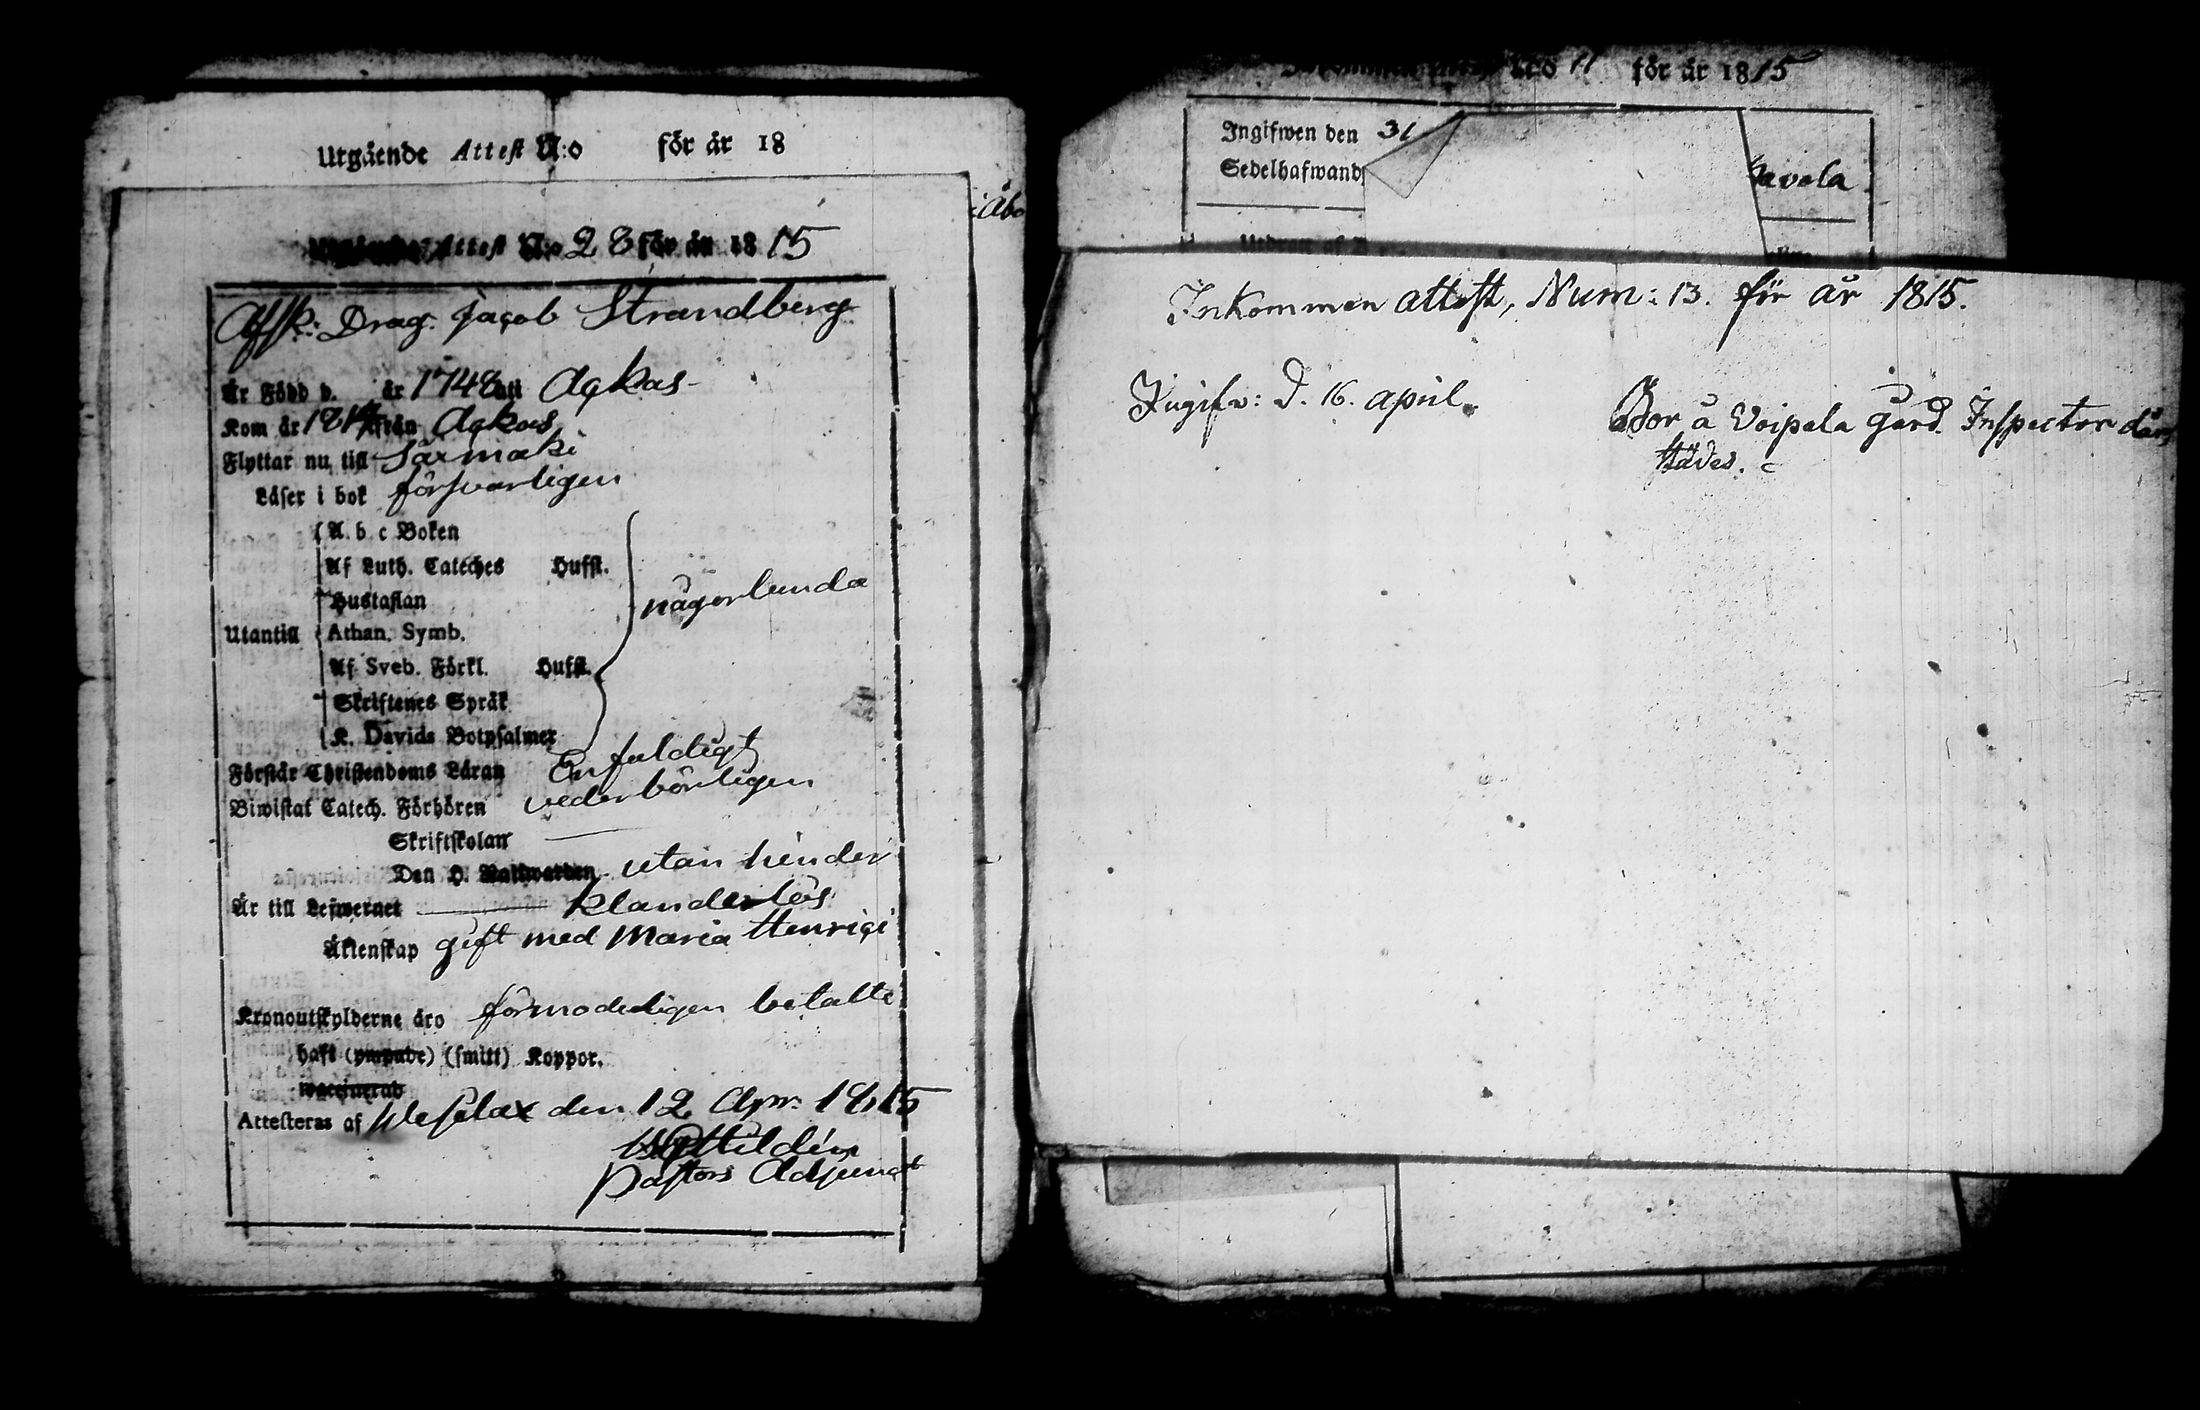 Utgående Attest N:o för år 18
Attest N:o 28 för år 1815
Afsk: Drag. Jacob Strandberg
Är Född d. år 1748 uti Ackas
Kom år 1814 från Ackas
Flyttar nu till Särmäki
Läser i bok försvarligen
A. b c Boken
Af Luth. Cateches Hufst.
Hustaflan
någorlunda
Utantill Athan. Symb.
Af Sveb. Förkl. Hufst.
Skriftenes Språk
K. Davids Botpsalmer
Förstår Christendoms Läran Enfaldigt
Biwistat Catech. Förhören vederbörligen
Skriftskolan
Den H. Nattwarden utan hinder
Är till Lefwernet klanderlös
Äktenskap gift med Maria Henrici
Kronoutskylderne äro förmodeligen betalte
haft (ympade) (smitt) Koppor.
waccinerad
Attesteras af Wesilax den 12 Apr. 1815
Pastors Adjunct
i Åbo
N:o 11 för år 1815
Ingifwen den 31
Sedelhafwand
avola
Inkommen attest, Num: 13. för år 1815.
Ingifv: d. 16. april.
Bor å Voipala gård. Inspector där
städes.